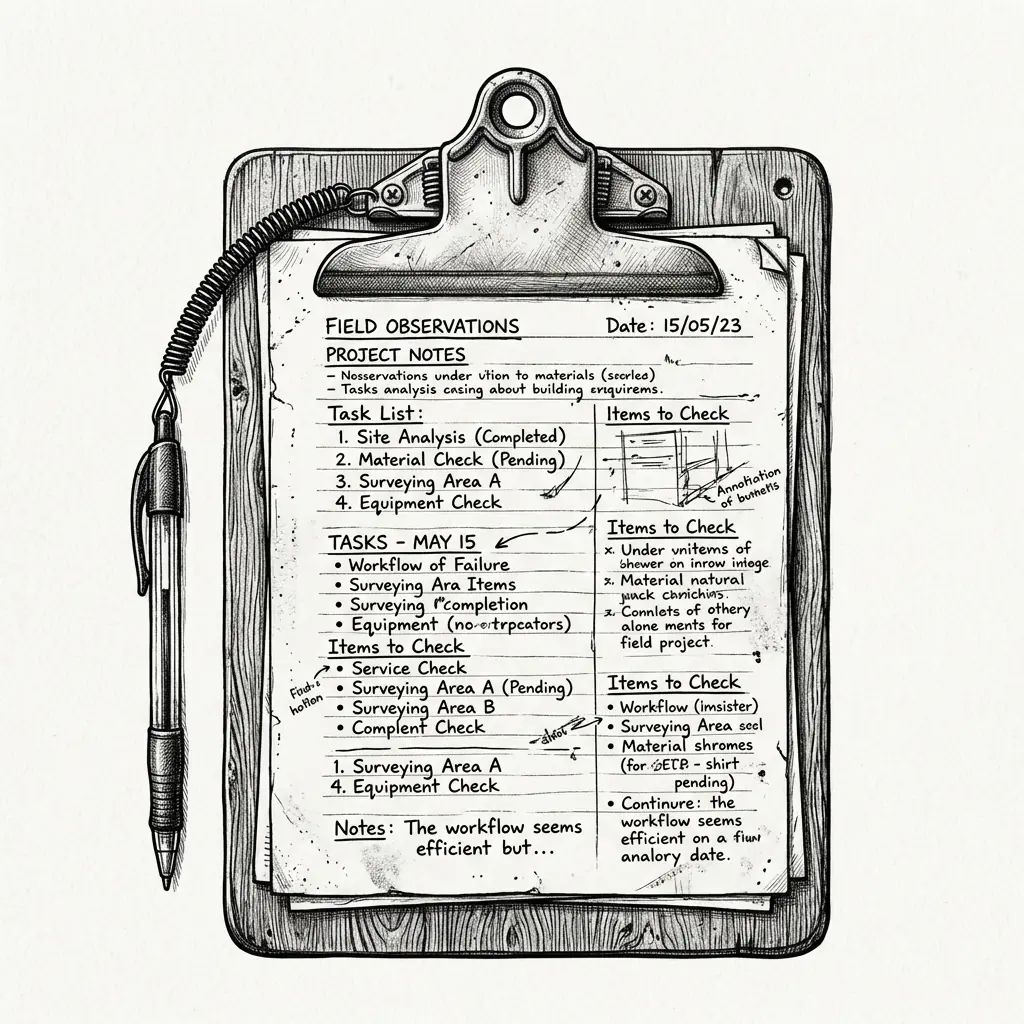 FIELD OBSERVATIONS
Date: 15/05/23
PROJECT NOTES
– Nosservations under to materials
– Tasks analysis casing about building enquirems.
Task List:
1. Site Analysis (Completed)
2. Material Check (Pending)
3. Surveying Area A
4. Equipment Check
TASKS – MAY 15
• Workflow of Failure
• Surveying Ara Items
• Surveying completion
• Equipment
Items to Check
• Service Check
• Surveying Area A (Pending)
• Surveying Area B
• Complent Check
1. Surveying Area A
4. Equipment Check
Notes: The workflow seems
efficient but...
Items to Check
Annotiation
of
Items to Check
x. Under vnitems of
bhewer on inrow
Material natural
Connlets of othery
alone ments for
field project.
Items to Check
• Workflow (imsister)
• Surveying Area
• Material shromes
(for – shirt
pending)
• Continue: the
workflow seems
efficient on a
analory date.